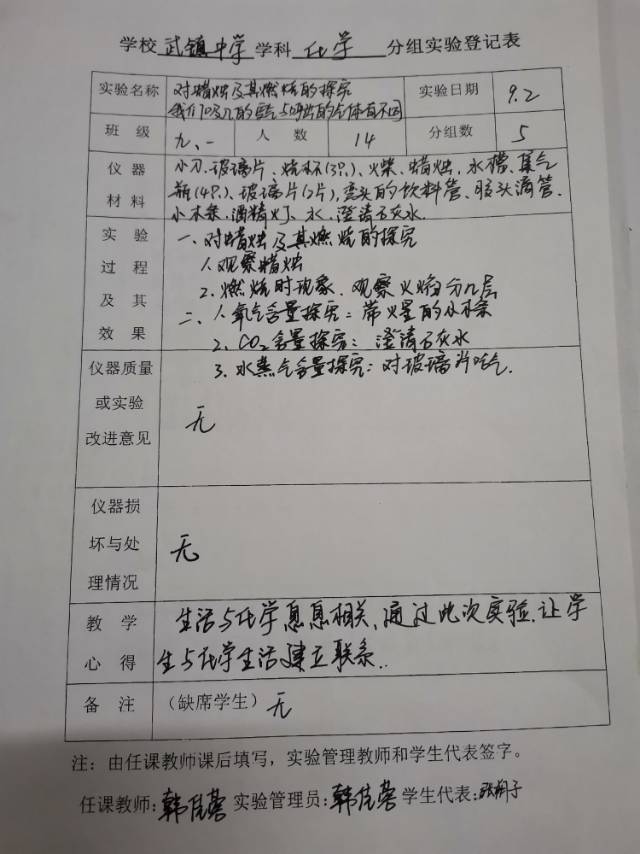 学校 武镇中学 学科 化学 分组实验登记表
实验名称 对蜡烛及其燃烧的探究 实验日期 9.2
我们吸入的空气与呼出的气体有不同
班级 九.一 人数 14 分组数 5
仪器 小刀、玻璃片、烧杯(3只)、火柴、蜡烛、水槽、集气
材料 瓶(4只)、玻璃片(2片)、弯头的饮料管、胶头滴管、
小木条、酒精灯、水、澄清石灰水.
实验 一、对蜡烛及其燃烧的探究
过程 1.观察蜡烛
2.燃烧时现象、观察火焰分几层
及其 二、1.氧气含量探究：带火星的小木条
效果 2.CO₂含量探究：澄清石灰水
仪器质量 3.水蒸气含量探究：对玻璃片哈气.
或实验 无
改进意见
仪器损
坏与处 无
理情况
教学 生活与化学息息相关，通过此次实验，让学
心得 生与化学生活建立联系..
备注 （缺席学生）无
注：由任课教师课后填写，实验管理教师和学生代表签字。
任课教师：韩佳蓉 实验管理员：韩佳蓉 学生代表：子